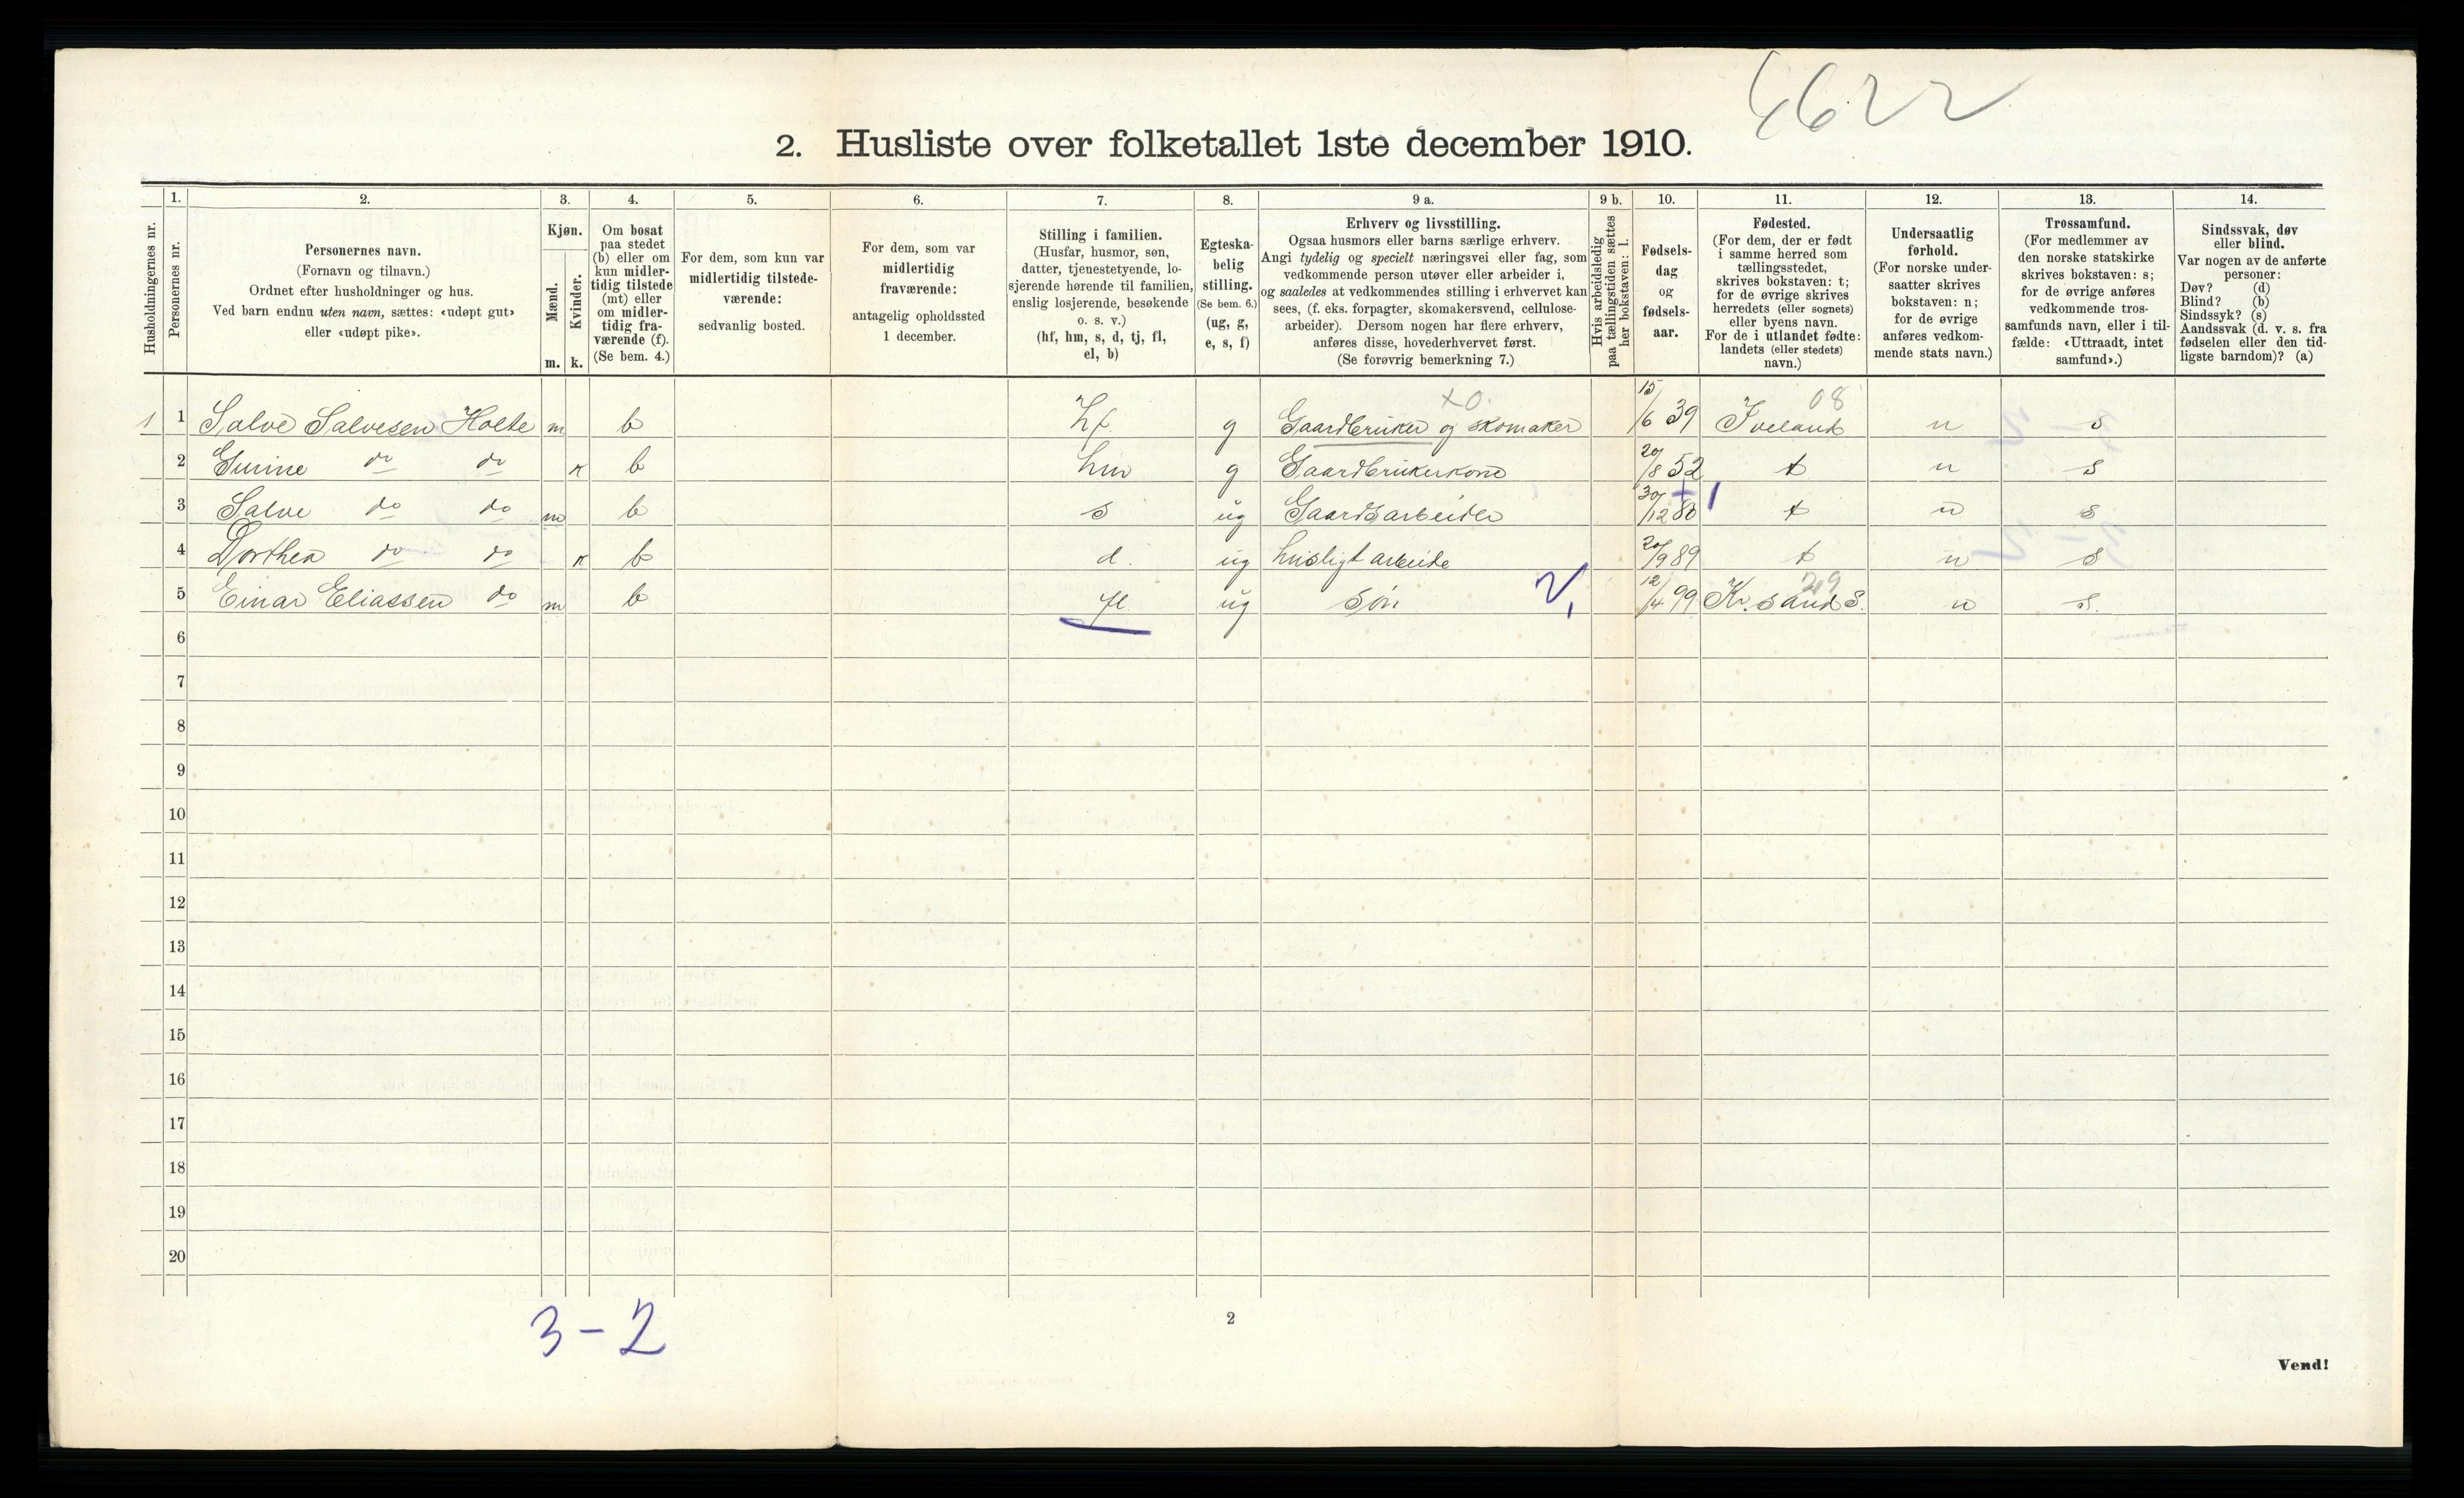 4622
2. Husliste over folketallet 1ste december 1910.
Husholdningernes nr.
1.
Personernes nr.
2.
Personernes navn.
(Fornavn og tilnavn.)
Ordnet efter husholdninger og hus.
Ved barn endnu uten navn, sættes: «udøpt gut»
eller «udøpt pike».
3.
Kjøn.
Mænd.
Kvinder.
m. k.
4.
Om bosat
paa stedet
(b) eller om
kun midler-
tidig tilstede
(mt) eller
om midler-
tidig fra-
værende (f).
(Se bem. 4.)
5.
For dem, som kun var
midlertidig tilstede-
værende:
sedvanlig bosted.
6.
For dem, som var
midlertidig
fraværende:
antagelig opholdssted
1 december.
7.
Stilling i familien.
(Husfar, husmor, søn,
datter, tjenestetyende, lo-
sjerende hørende til familien,
enslig losjerende, besøkende
o. s. v.)
(hf, hm, s, d, tj, fl,
el, b)
8.
Egteska-
belig
stilling.
(Se bem. 6.)
(ug, g,
e, s, f)
9 a.
Erhverv og livsstilling.
Ogsaa husmors eller barns særlige erhverv.
Angi tydelig og specielt næringsvei eller fag, som
vedkommende person utøver eller arbeider i,
og saaledes at vedkommendes stilling i erhvervet kan
sees, (f. eks. forpagter, skomakersvend, cellulose-
arbeider). Dersom nogen har flere erhverv,
anføres disse, hovederhvervet først.
(Se forøvrig bemerkning 7.)
9 b.
Hvis arbeidsledig
paa tællingstiden sættes
her bokstaven: l.
10.
Fødsels-
dag
og
fødsels-
aar.
11.
Fødested.
(For dem, der er født
i samme herred som
tællingsstedet,
skrives bokstaven: t;
for de øvrige skrives
herredets (eller sognets)
eller byens navn.
For de i utlandet fødte:
landets (eller stedets)
navn.)
12.
Undersaatlig
forhold.
(For norske under-
saatter skrives
bokstaven: n;
for de øvrige
anføres vedkom-
mende stats navn.)
13.
Trossamfund.
(For medlemmer av
den norske statskirke
skrives bokstaven: s;
for de øvrige anføres
vedkommende tros-
samfunds navn, eller i til-
fælde: «Uttraadt, intet
samfund».)
14.
Sindssvak, døv
eller blind.
Var nogen av de anførte
personer:
Døv? (d)
Blind? (b)
Sindssyk? (s)
Aandssvak (d. v. s. fra
fødselen eller den tid-
ligste barndom)? (a)
x0. 08
1 1 Salve Salvesen Holte m b hf. g Gaardbruker og skomaker 15/6 39 Iveland n s
2 Gurine do do k b hm g Gaardbrukerkone 20/8 52 t n s
+1
3 Salve do do m b s ug Gaardsarbeider 30/12 80 t n s
4 Dorthea do do k b d. ug husligt arbeide 20/9 89 t n s
219
5 Einar Eliassen do m b fl ug søn 12/4 99 Kr.sand S. n s.
6
7
8
9
10
11
12
13
14
15
16
17
18
19
20
3 - 2
2
Vend!